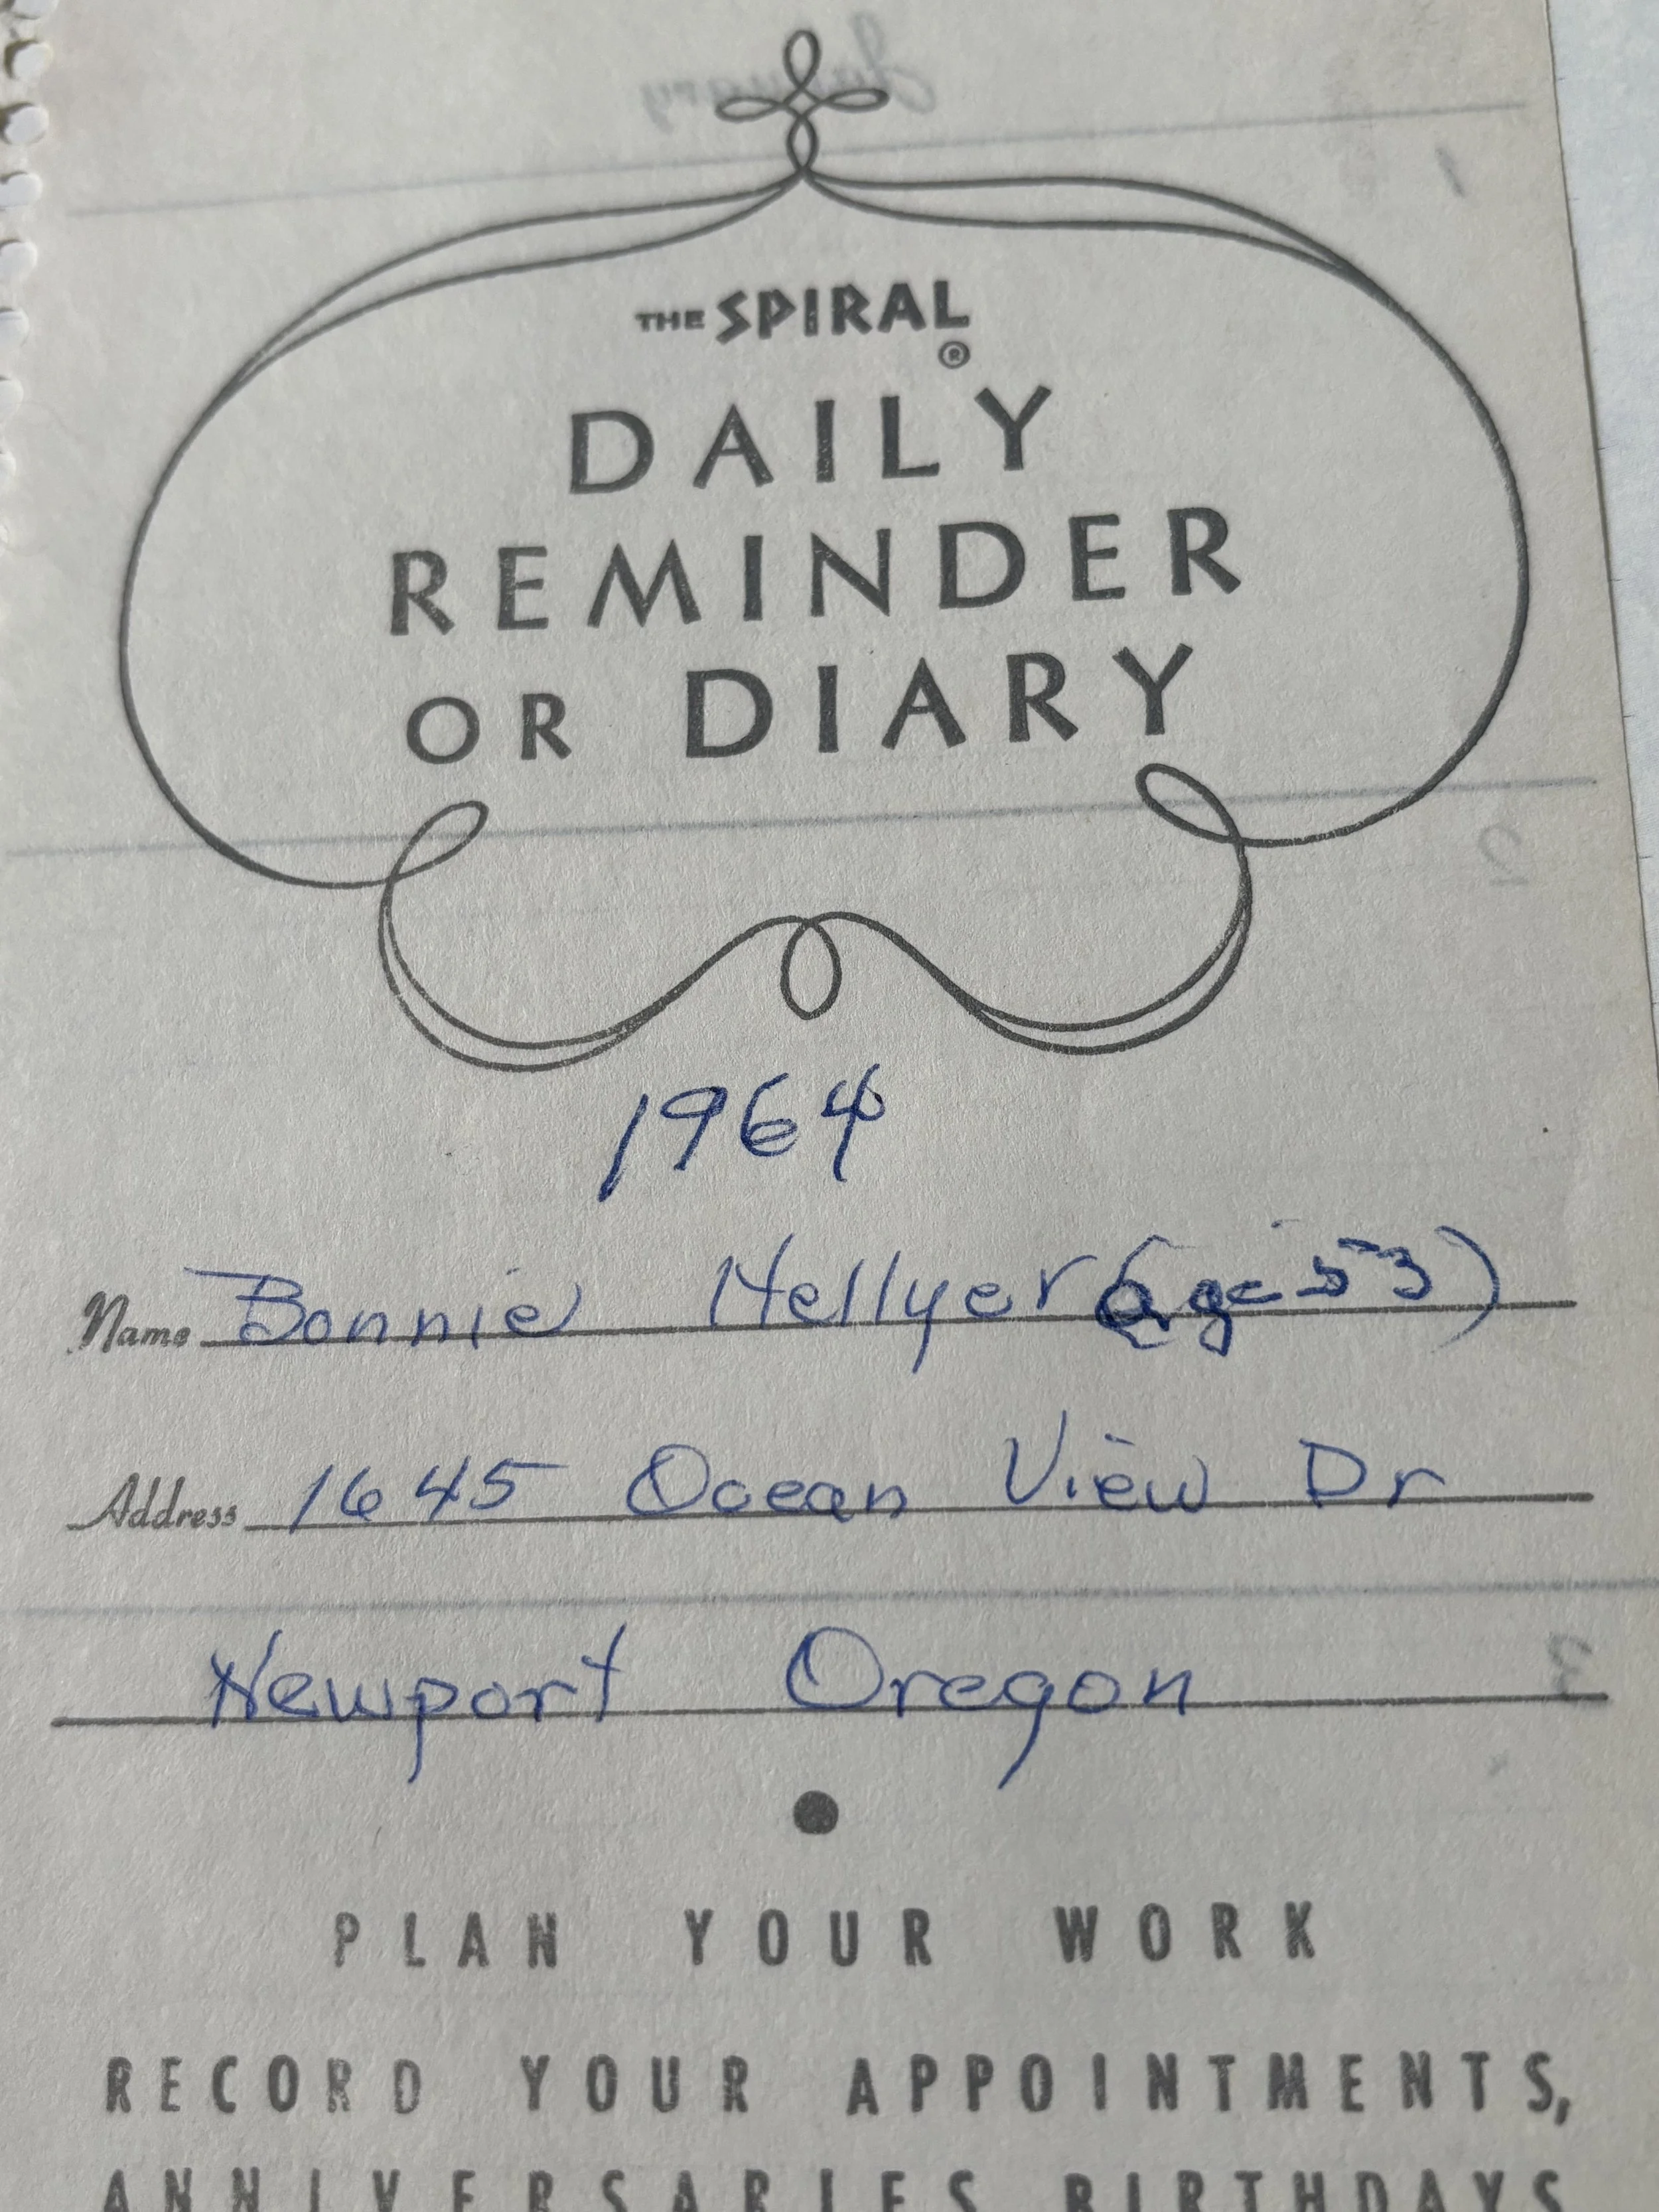 THE SPIRAL®
DAILY
REMINDER
OR DIARY
1964
Name Bonnie Hellyer (age 53)
Address 1645 Ocean View Dr
Newport Oregon
PLAN YOUR WORK
RECORD YOUR APPOINTMENTS,
ANNIVERSARIES BIRTHDAYS
January
1
2
3